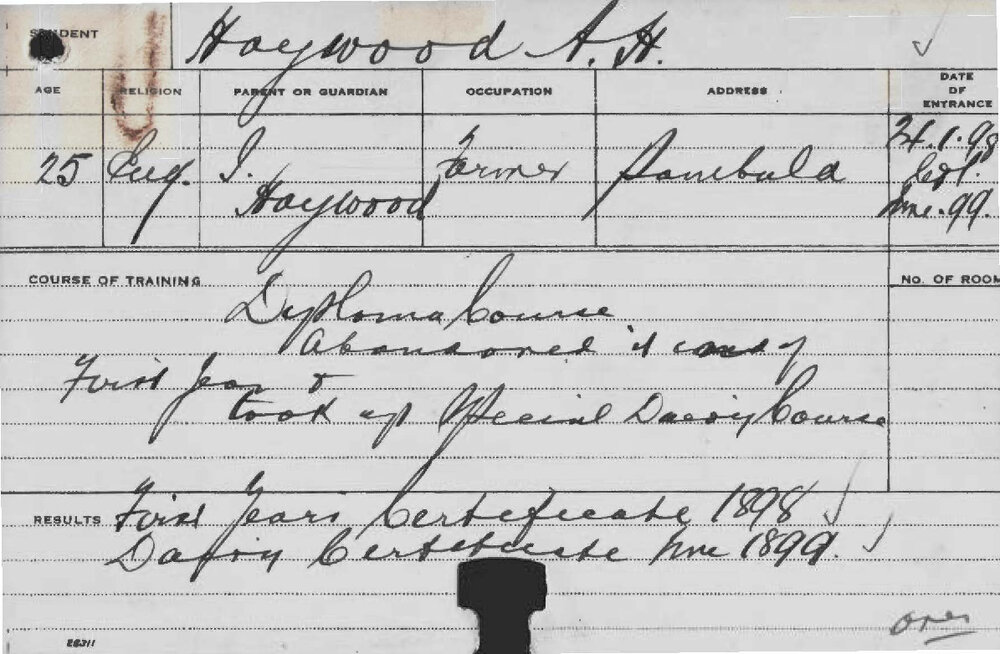 STUDENT Haywood A. H.
AGE RELIGION PARENT OR GUARDIAN OCCUPATION ADDRESS DATE OF ENTRANCE
25 Eng. J. Haywood Farmer 24.1.98
Left June. 99.
COURSE OF TRAINING NO. OF ROOM
Diploma Course
Abandoned it end of
First Year &
took up Special Dairy Course
RESULTS First Years Certificate 1898
Dairy Certificate June 1899.
over
E6311